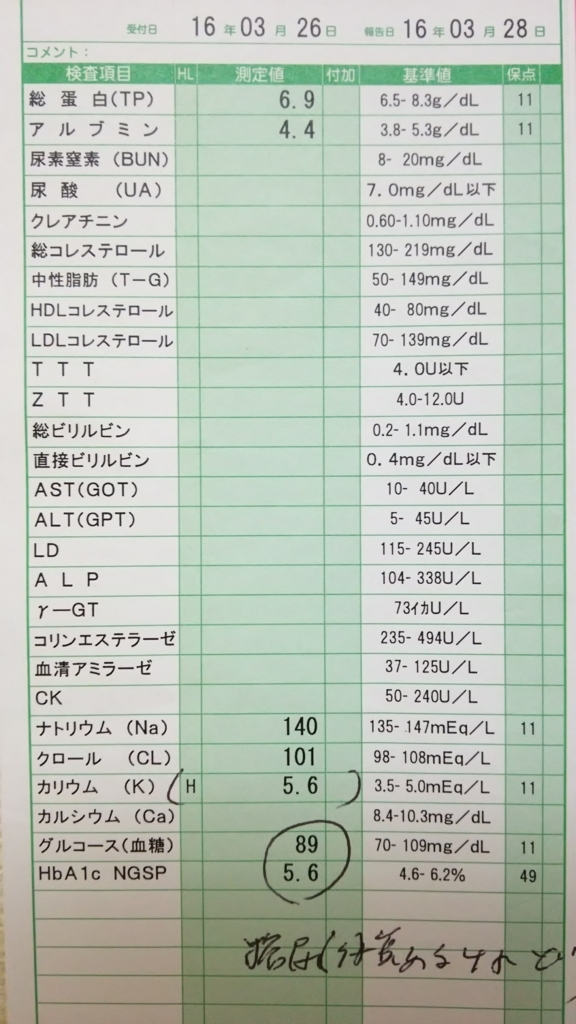 受付日 16年03月26日 報告日 16年03月28日
コメント：
検査項目 HL 測定値 付加 基準値 保点
総蛋白(TP) 6.9 6.5- 8.3g／dL 11
アルブミン 4.4 3.8- 5.3g／dL 11
尿素窒素（BUN） 8- 20mg／dL
尿酸（UA） 7.0mg／dL以下
クレアチニン 0.60-1.10mg／dL
総コレステロール 130- 219mg／dL
中性脂肪（T－G） 50- 149mg／dL
HDLコレステロール 40- 80mg／dL
LDLコレステロール 70- 139mg／dL
TTT 4.0U以下
ZTT 4.0-12.0U
総ビリルビン 0.2- 1.1mg／dL
直接ビリルビン 0.4mg／dL以下
AST(GOT) 10- 40U／L
ALT(GPT) 5- 45U／L
LD 115- 245U／L
ALP 104- 338U／L
γ－GT 73ｲｶU／L
コリンエステラーゼ 235- 494U／L
血清アミラーゼ 37- 125U／L
CK 50- 240U／L
ナトリウム（Na） 140 135- 147mEq／L 11
クロール（CL） 101 98- 108mEq／L
カリウム（K） H 5.6 3.5- 5.0mEq／L 11
カルシウム（Ca） 8.4-10.3mg／dL
グルコース(血糖) 89 70- 109mg／dL 11
HbA1c NGSP 5.6 4.6- 6.2% 49